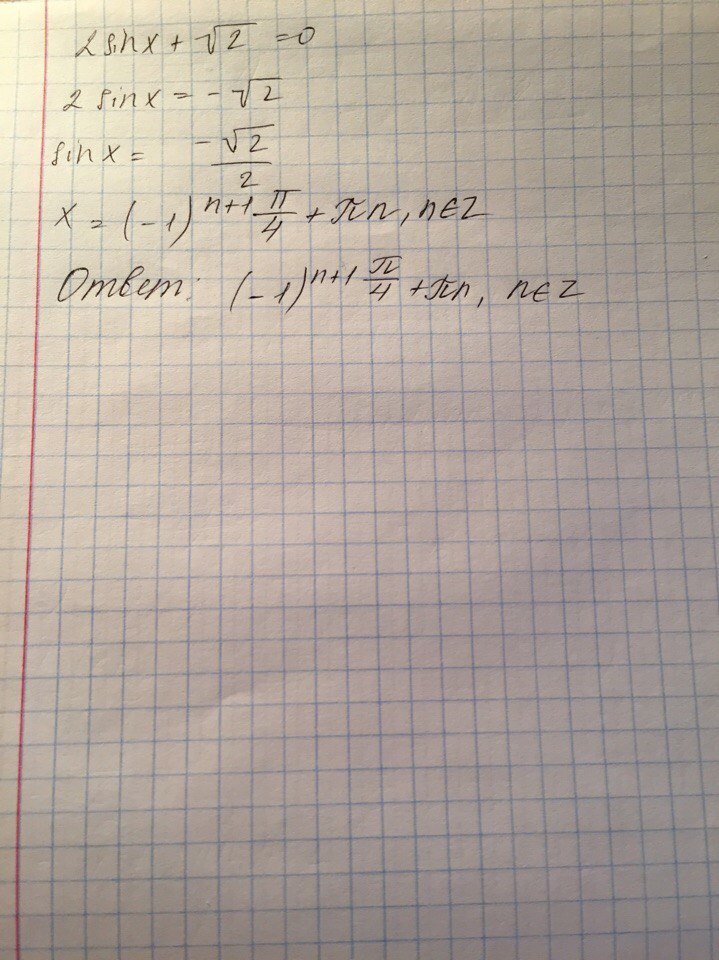 2 sin x + √2 = 0
2 sin x = -√2
sin x = -√2/2
x = (-1)^{n+1} π/4 + πn, n∈Z
Ответ: (-1)^{n+1} π/4 + πn, n∈Z